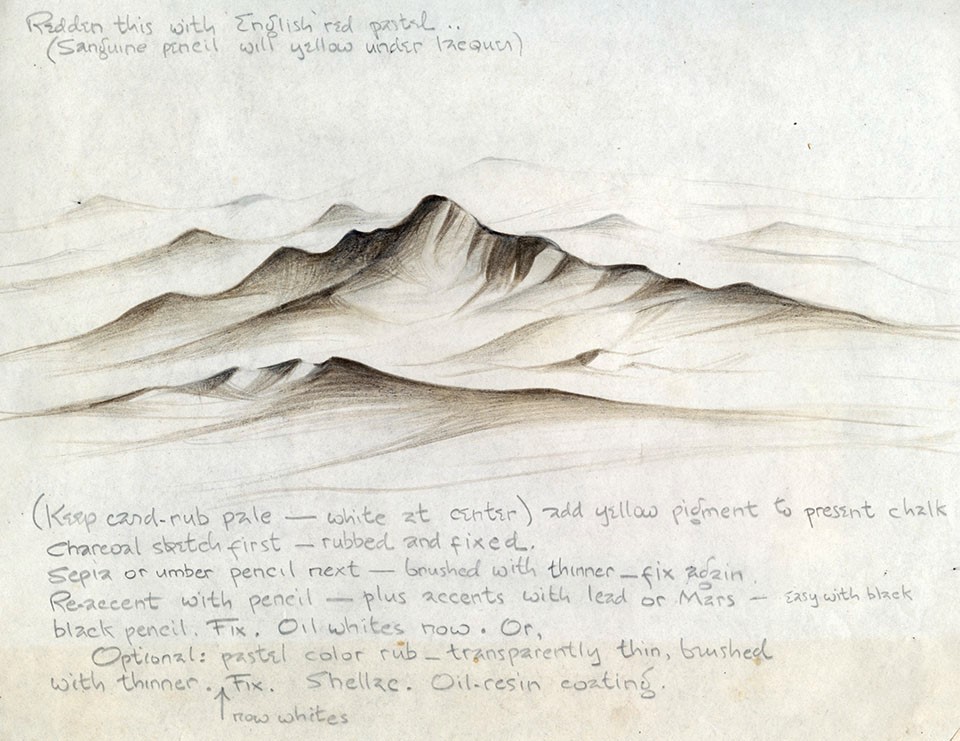 Redden this with English red pastel ..
(Sanguine pencil will yellow under lacquer)
(Keep card-rub pale — white at center) add yellow pigment to present chalk
Charcoal sketch first — rubbed and fixed.
Sepia or umber pencil next — brushed with thinner — fix again.
Re-accent with pencil — plus accents with lead or Mars — easy with black
black pencil. Fix. Oil whites now. Or,
Optional: pastel color rub — transparently thin, brushed
with thinner. Fix. Shellac. Oil-resin coating.
now whites